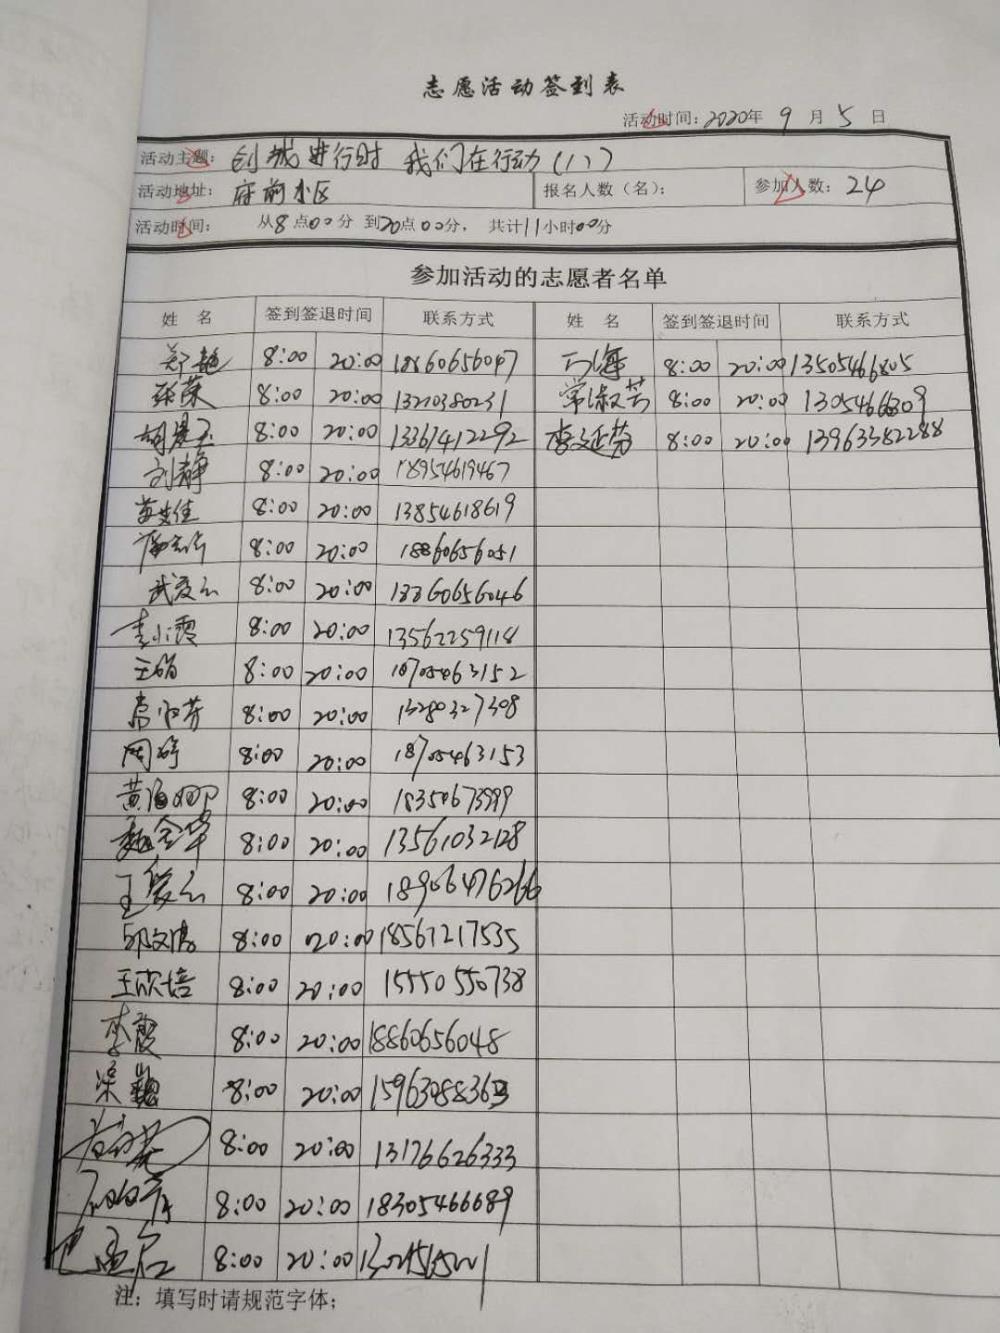 志愿活动签到表
活动时间：2020年 9 月 5 日
活动主题： 创城进行时 我们在行动（1）
活动地址： 府前小区 报名人数（名）： 参加人数：24
活动时间： 从8点00分 到20点00分， 共计11小时00分
参加活动的志愿者名单
姓 名 签到签退时间 联系方式 姓 名 签到签退时间 联系方式
郑艳 8:00 20:00 18860656047 8:00 20:00 13505466805
张荣 8:00 20:00 13210380231 常淑芳 8:00 20:00 13054666309
胡晨玉 8:00 20:00 13361412292 李延芬 8:00 20:00 13963382288
刘静 8:00 20:00 18954619467
8:00 20:00 13854618619
8:00 20:00 18860656051
8:00 20:00 18860656046
李小霞 8:00 20:00 13562259118
王娟 8:00 20:00 18705463152
8:00 20:00 13280327308
周婷 8:00 20:00 18705463153
黄海娜 8:00 20:00 18350673999
魏金华 8:00 20:00 13561032128
王俊 8:00 20:00 18906476266
邱文 8:00 20:00 18561217535
王欣培 8:00 20:00 15550550738
李霞 8:00 20:00 18860656048
梁巍 8:00 20:00
8:00 20:00 13176626333
8:00 20:00 18305466689
8:00 20:00
注：填写时请规范字体；